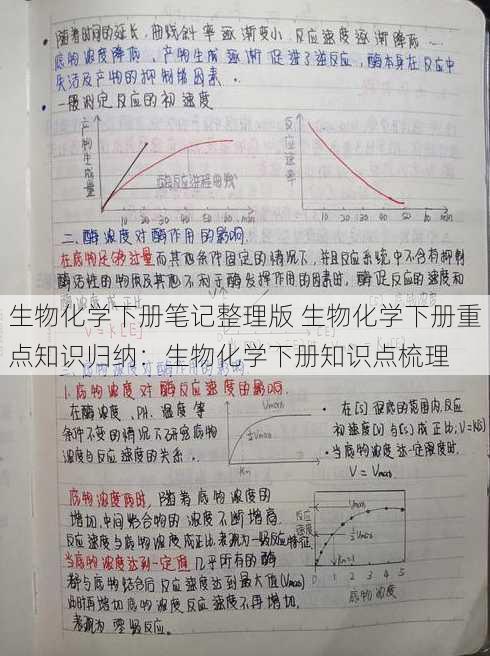 随着时间的延长,曲线斜率逐渐变小,反应速度逐渐降低...
底物浓度降低,产物生成逐渐促进了逆反应,酶本身在反应中
失活及产物的抑制等因素.
一般测定反应的初速度
产物生成量
酶反应进程曲线
10 20 30 40 50 60 min
反应速率
10 20 30 40 50 60 min
二.酶浓度对酶作用的影响
在底物足够过量而其他条件固定的情况下,并且反应系统中不含有抑制
酶活性的物质及其他不利于酶发挥作用的因素时,酶促反应的速度和
生物化学下册笔记整理版 生物化学下册重
点知识归纳:生物化学下册知识点梳理
1.底物浓度对酶反应速度的影响.
在酶浓度、PH、温度等
条件不变的情况下研究底物
浓度与反应速度的关系.
Vmax
½Vmax
Km
在[S]很低的范围内,反应
初速度[V]与[S]成正比;V=K[S]
当底物浓度达一定限度时.
V=Vmax
底物浓度低时,随着底物浓度的
增加,中间络合物的浓度不断增高.
反应速度与底物浓度成正比,表现为一级反应特征.
当底物浓度达到一定值几乎所有的酶
都与底物结合后反应速度达到最大值(Vmax)
此时再增加底物浓度反应速度不再增加,
表现为零级反应.
反应速度
Vmax
½Vmax
Km=1
0 1 2 3 4 5
底物浓度